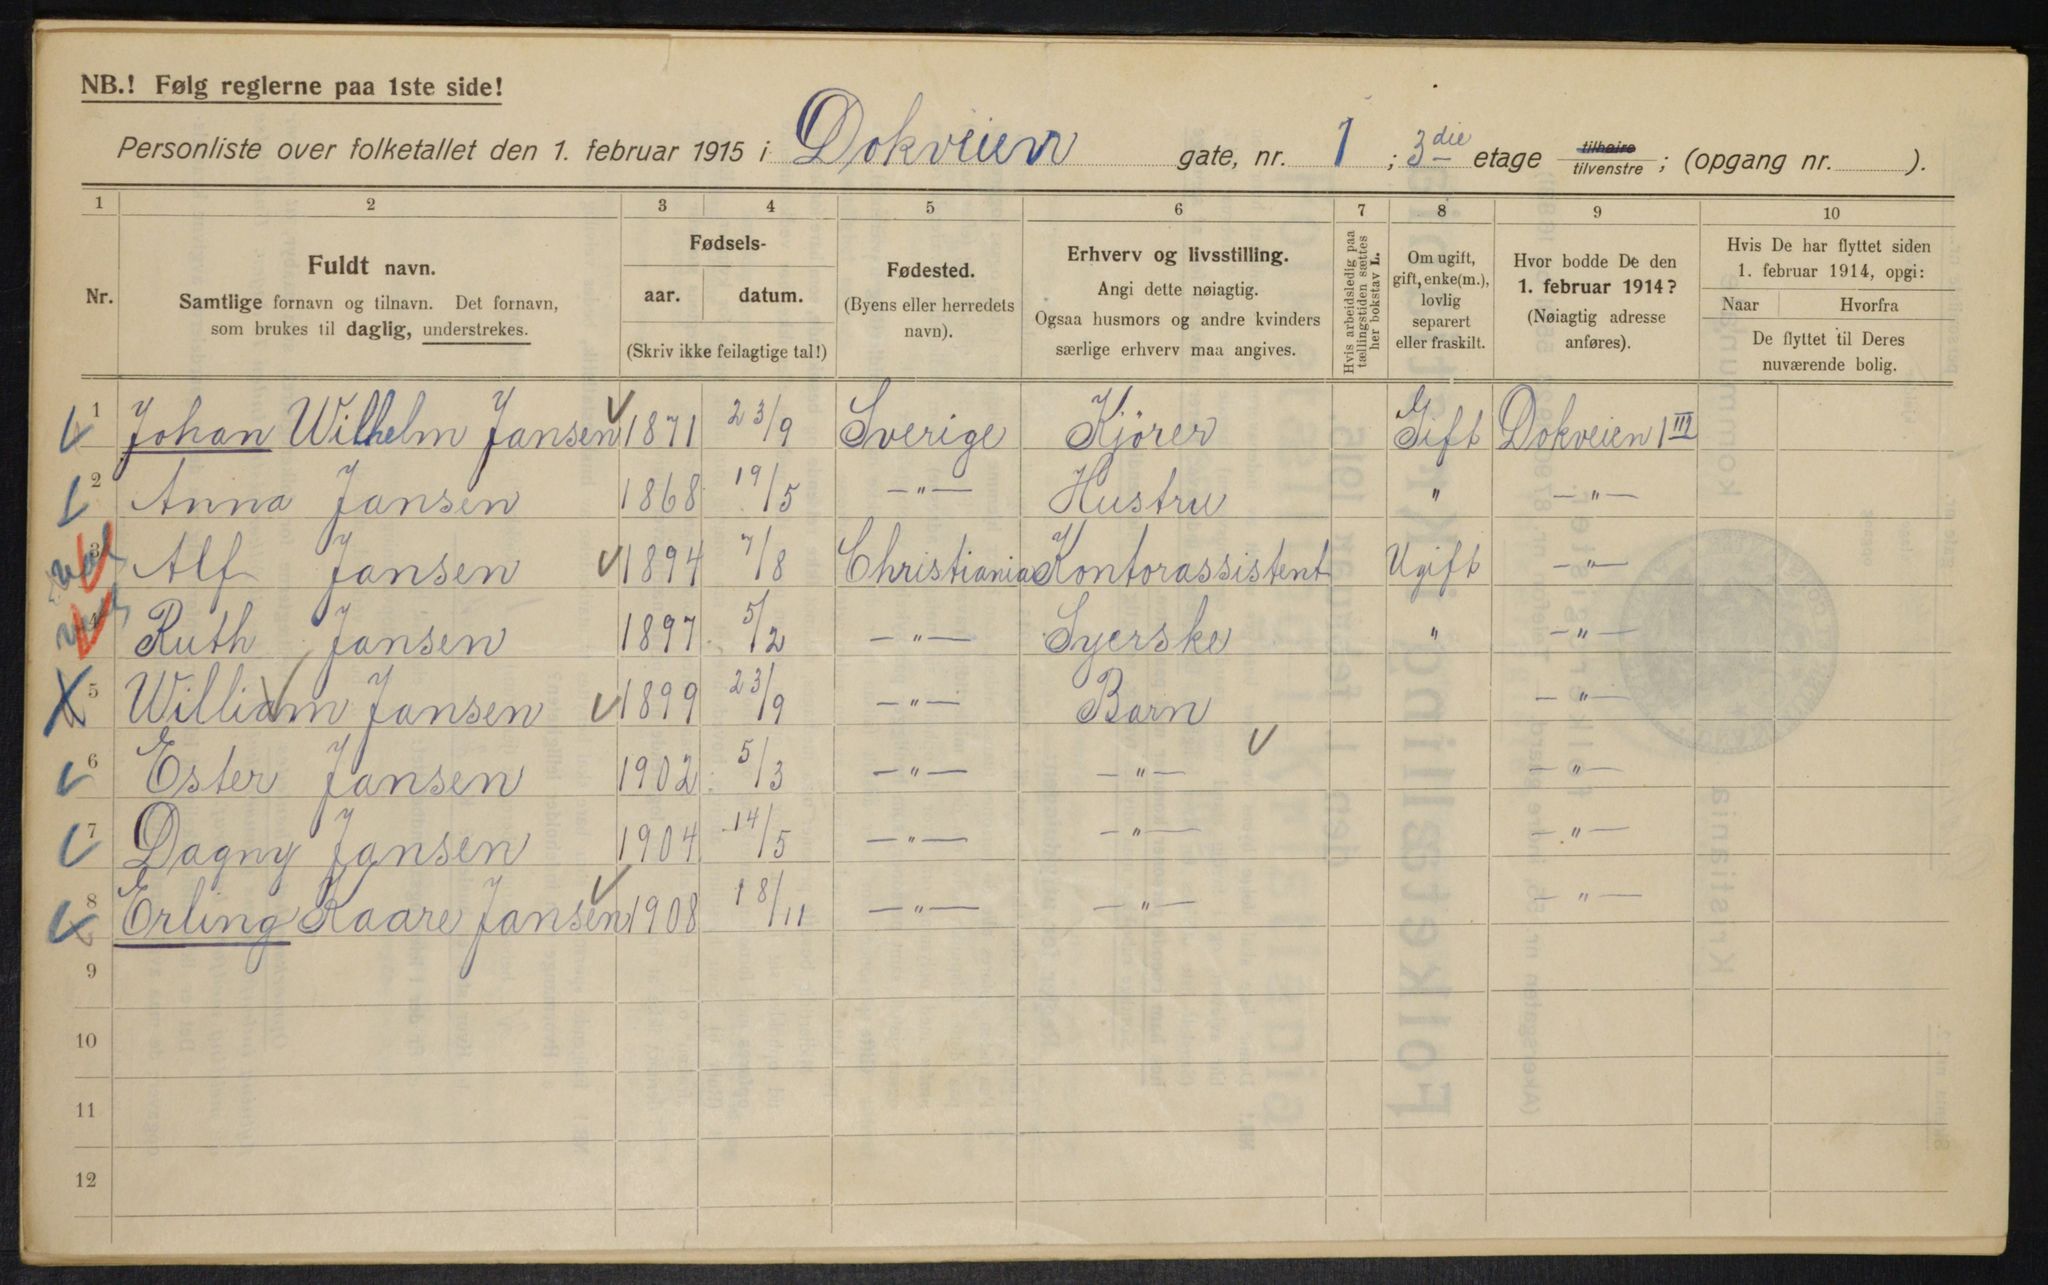 NB.! Følg reglerne paa 1ste side!
Personliste over folketallet den 1. februar 1915 i Dokveien gate, nr. 1; 3die etage tilhøire tilvenstre; (opgang nr. ).
1 2 3 4 5 6 7 8 9 10
Nr.
Fuldt navn.
Samtlige fornavn og tilnavn. Det fornavn,
som brukes til daglig, understrekes.
Fødsels-
aar. datum.
(Skriv ikke feilagtige tal!)
Fødested.
(Byens eller herredets
navn).
Erhverv og livsstilling.
Angi dette nøiagtig.
Ogsaa husmors og andre kvinders
særlige erhverv maa angives.
Hvis arbeidsledig paa
tællingstiden sættes
her bokstav L.
Om ugift,
gift, enke(m.),
lovlig
separert
eller fraskilt.
Hvor bodde De den
1. februar 1914?
(Nøiagtig adresse
anføres).
Hvis De har flyttet siden
1. februar 1914, opgi:
Naar Hvorfra
De flyttet til Deres
nuværende bolig.
1 Johan Wilhelm Jansen 1871 23/9 Sverige Kjører Gift Dokveien 1 III
2 Anna Jansen 1868 19/5 —"— Hustru " —"—
3 Alf Jansen 1894 7/8 Christiania Kontorassistent Ugift —"—
4 Ruth Jansen 1897 5/2 —"— Syerske " —"—
5 William Jansen 1899 23/9 —"— Barn —"—
6 Ester Jansen 1902 5/3 —"— —"— —"—
7 Dagny Jansen 1904 14/5 —"— —"— —"—
8 Erling Kaare Jansen 1908 18/11 —"— —"— —"—
9
10
11
12